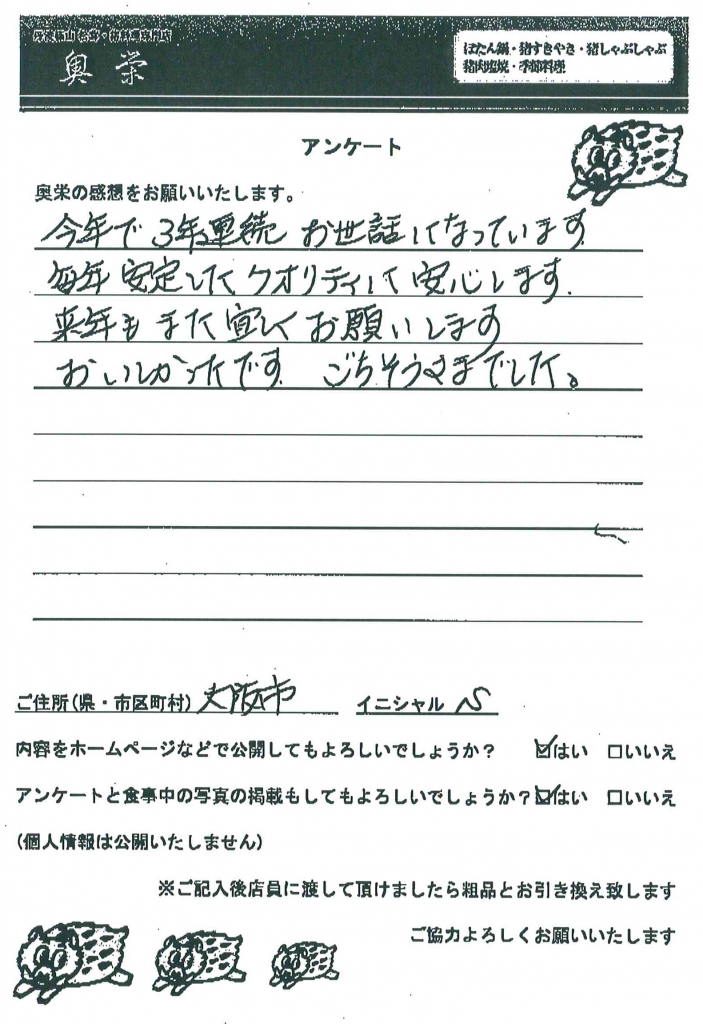 奥栄
ぼたん鍋・猪すきやき・猪しゃぶしゃぶ
猪肉塩焼・季節料理
アンケート
奥栄の感想をお願いいたします。
今年で3年連続 お世話になっています
毎年 安定したクオリティにて 安心します.
来年もまた宜しくお願いします
おいしかったです ごちそうさまでした。
ご住所(県・市区町村) 大阪市 イニシャル N
内容をホームページなどで公開してもよろしいでしょうか? ☑はい □いいえ
アンケートと食事中の写真の掲載もしてもよろしいでしょうか?☑はい □いいえ
(個人情報は公開いたしません)
※ご記入後店員に渡して頂けましたら粗品とお引き換え致します
ご協力よろしくお願いいたします